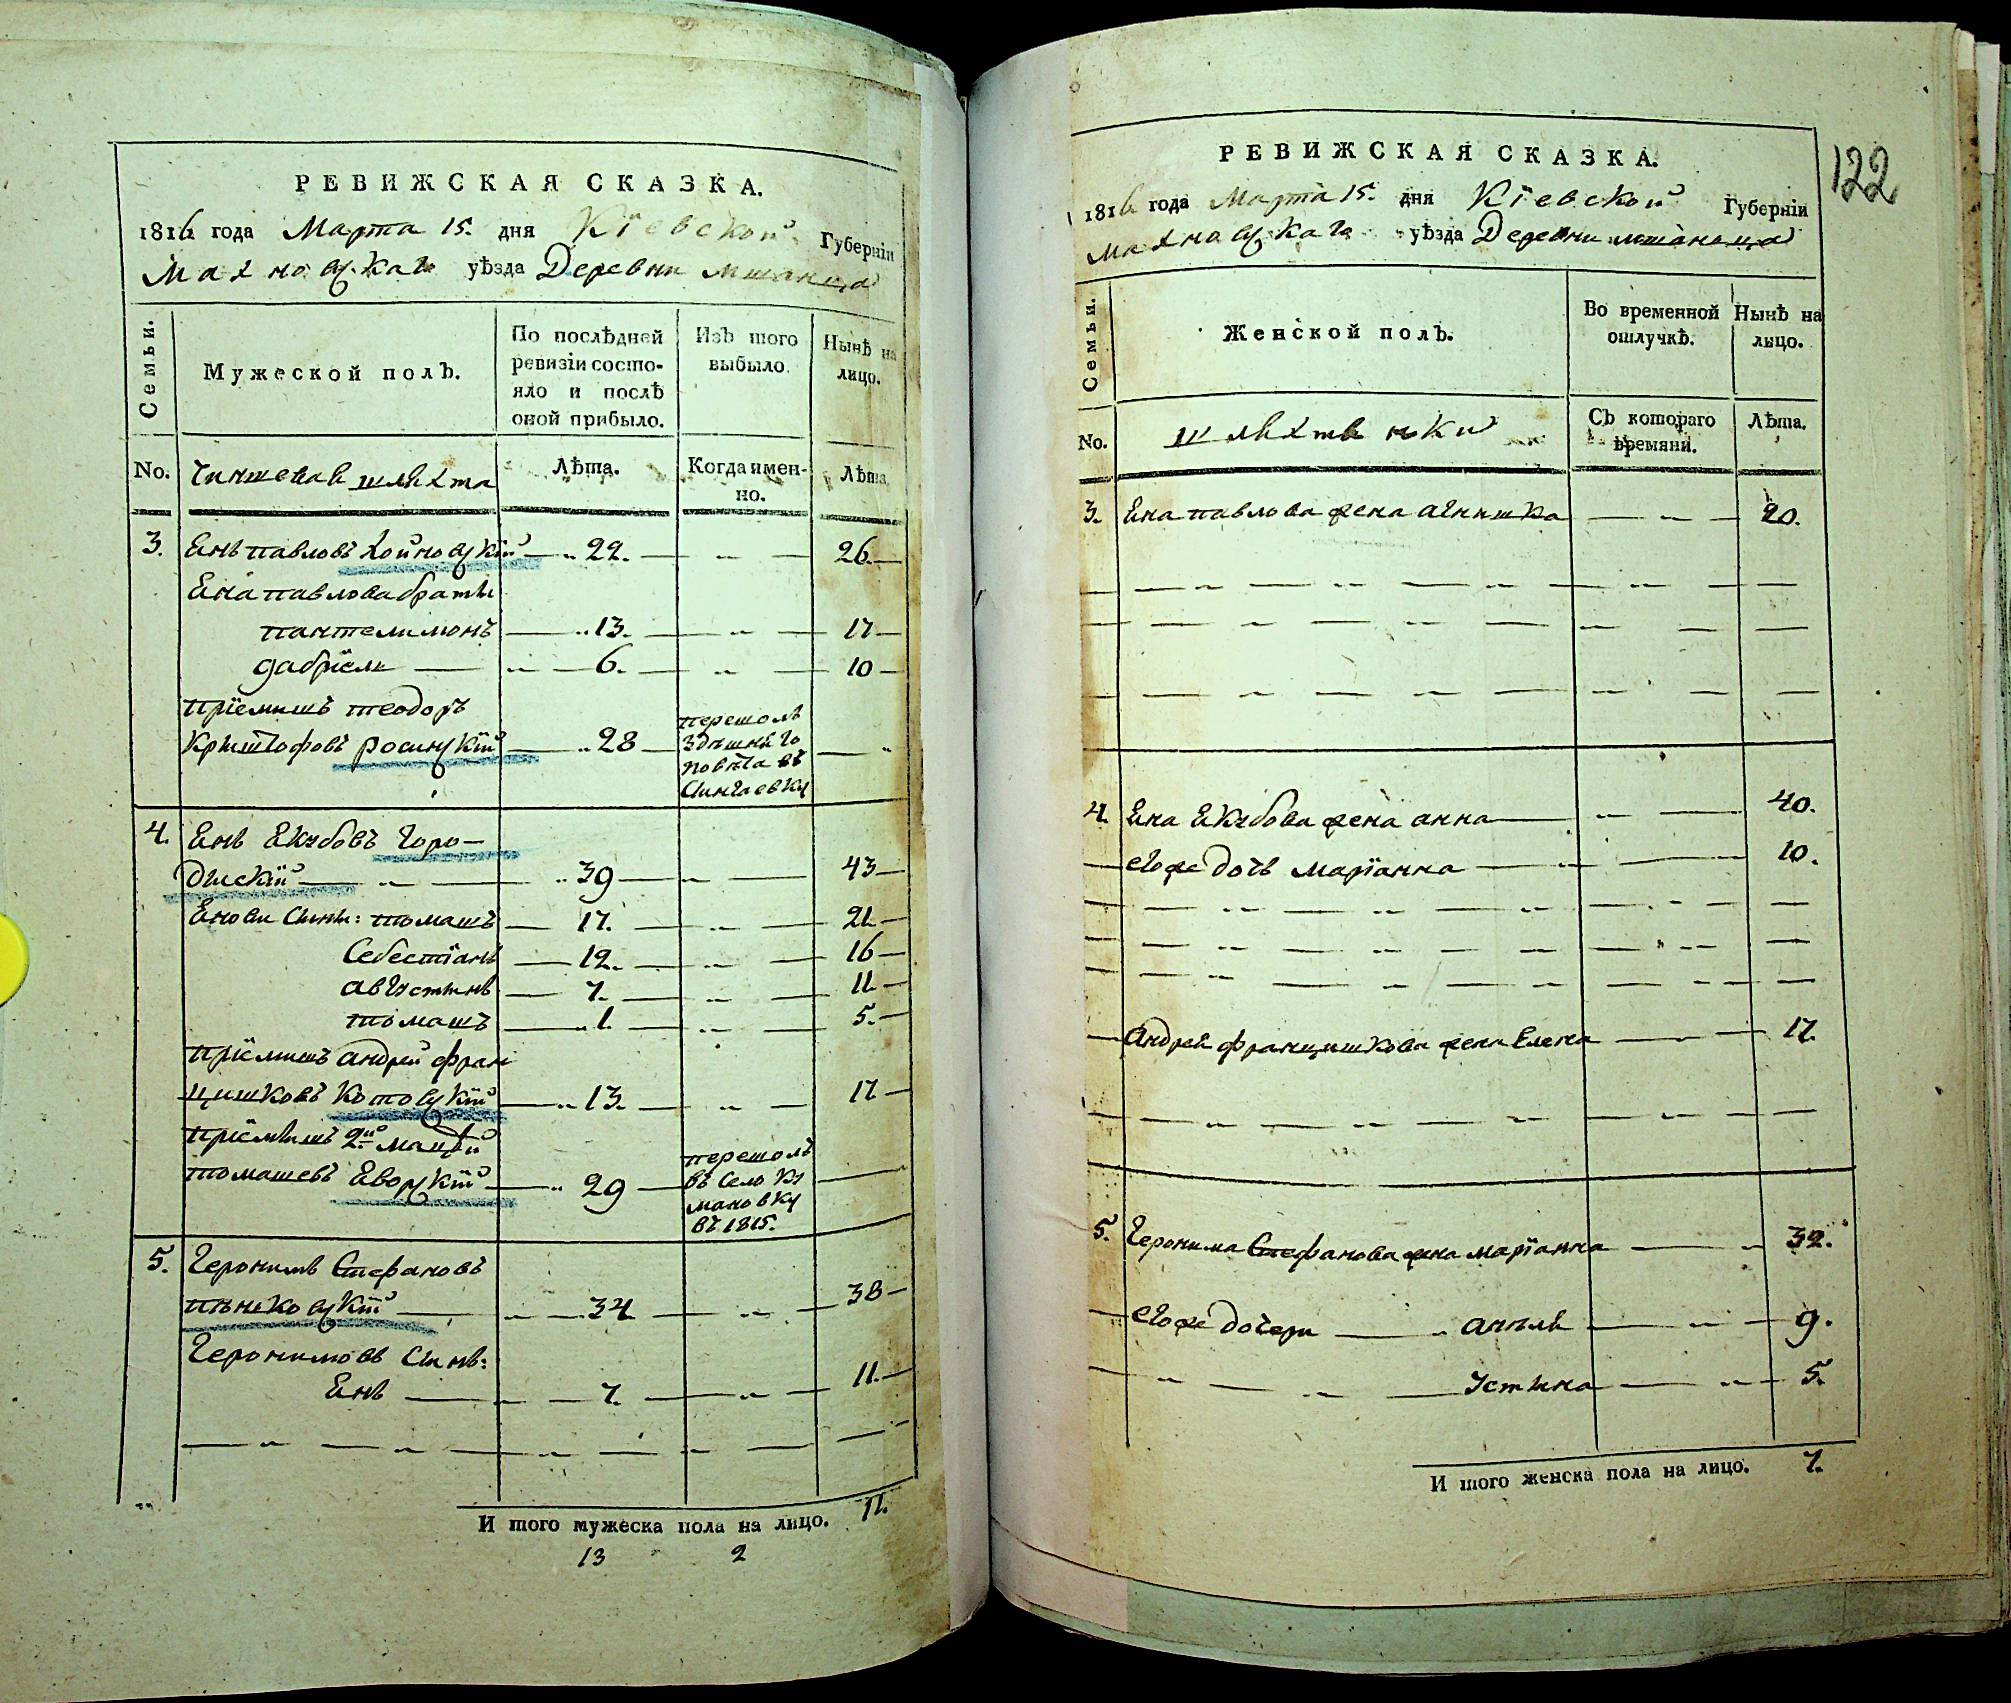 РЕВИЖСКАЯ СКАЗКА.
1816 года Марта 15. дня Кіевской Губерніи
Махновскаго уѣзда Деревни Мшанца
Семьи.
Мужеской полъ.
По послѣдней ревизіи состо-
яло и послѣ
оной прибыло.
Изъ того
выбыло.
Нынѣ на
лицо.
No. Чиншевая шляхта
Лѣта.
Когда имен-
но.
Лѣта
3. Енъ павловъ Хойновскій 22. 26.
Ена павлова браты
пантелимонъ 13. 17
габріель 6. 10
пріемышъ теодоръ
криштофовъ росинскій 28 перешолъ
здѣшняго
повѣта въ
Сингаевку
4. Енъ Екубовъ Горо-
дискій 39 43
Енови сыны: томашъ 17. 21
Себестіанъ 12. 16
августинъ 7. 11
томашъ 1. 5.
пріемышъ андрей фран
цишковъ котовскій 13. 17
пріемышъ 2й матѣй
томашевъ Еворскій 29 перешолъ
въ село Ку
мановку
въ 1815.
5. Геронимъ Стефановъ
пѣнковскій 34 38
Геронимовъ сынъ:
Енъ 7. 11.
И того мужеска пола на лицо. 11.
13 2
122
РЕВИЖСКАЯ СКАЗКА.
1816 года Марта 15. дня Кіевской Губерніи
Махновскаго уѣзда Деревни мшанца
Семьи.
Женской полъ.
Во временной
отлучкѣ.
Нынѣ на
лицо.
No. шляхтянки
Съ котораго
времяни.
Лѣта.
3. Ена павлова жена агнишка 20.
4. Ена Екубова жена анна 40.
его же дочь маріанна 10.
андрея францишкова жена Елена 17.
5. Геронима Стефанова жена маріанна 32.
его же дочери анъля 9.
Устина 5.
И того женска пола на лицо. 7.